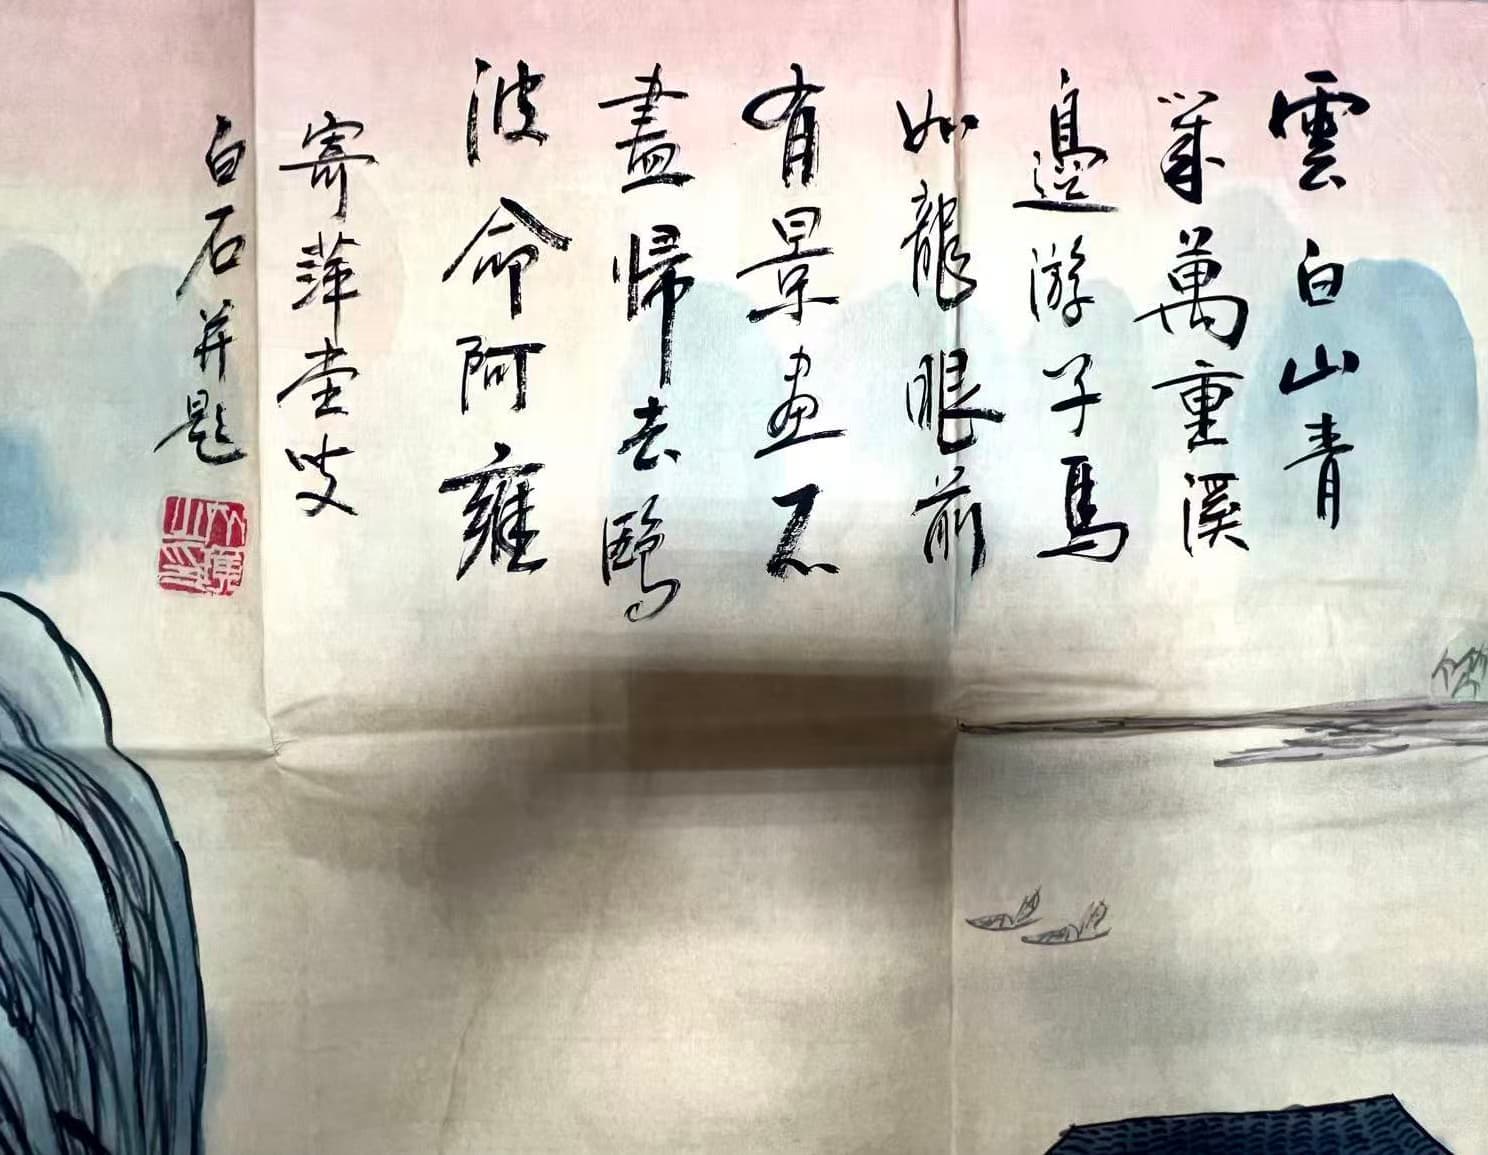 雲白山青
幾萬重溪
邊游子馬
如龍眼前
有景畫不
盡歸去鷗
波命阿雍
寄萍堂叟
白石并題